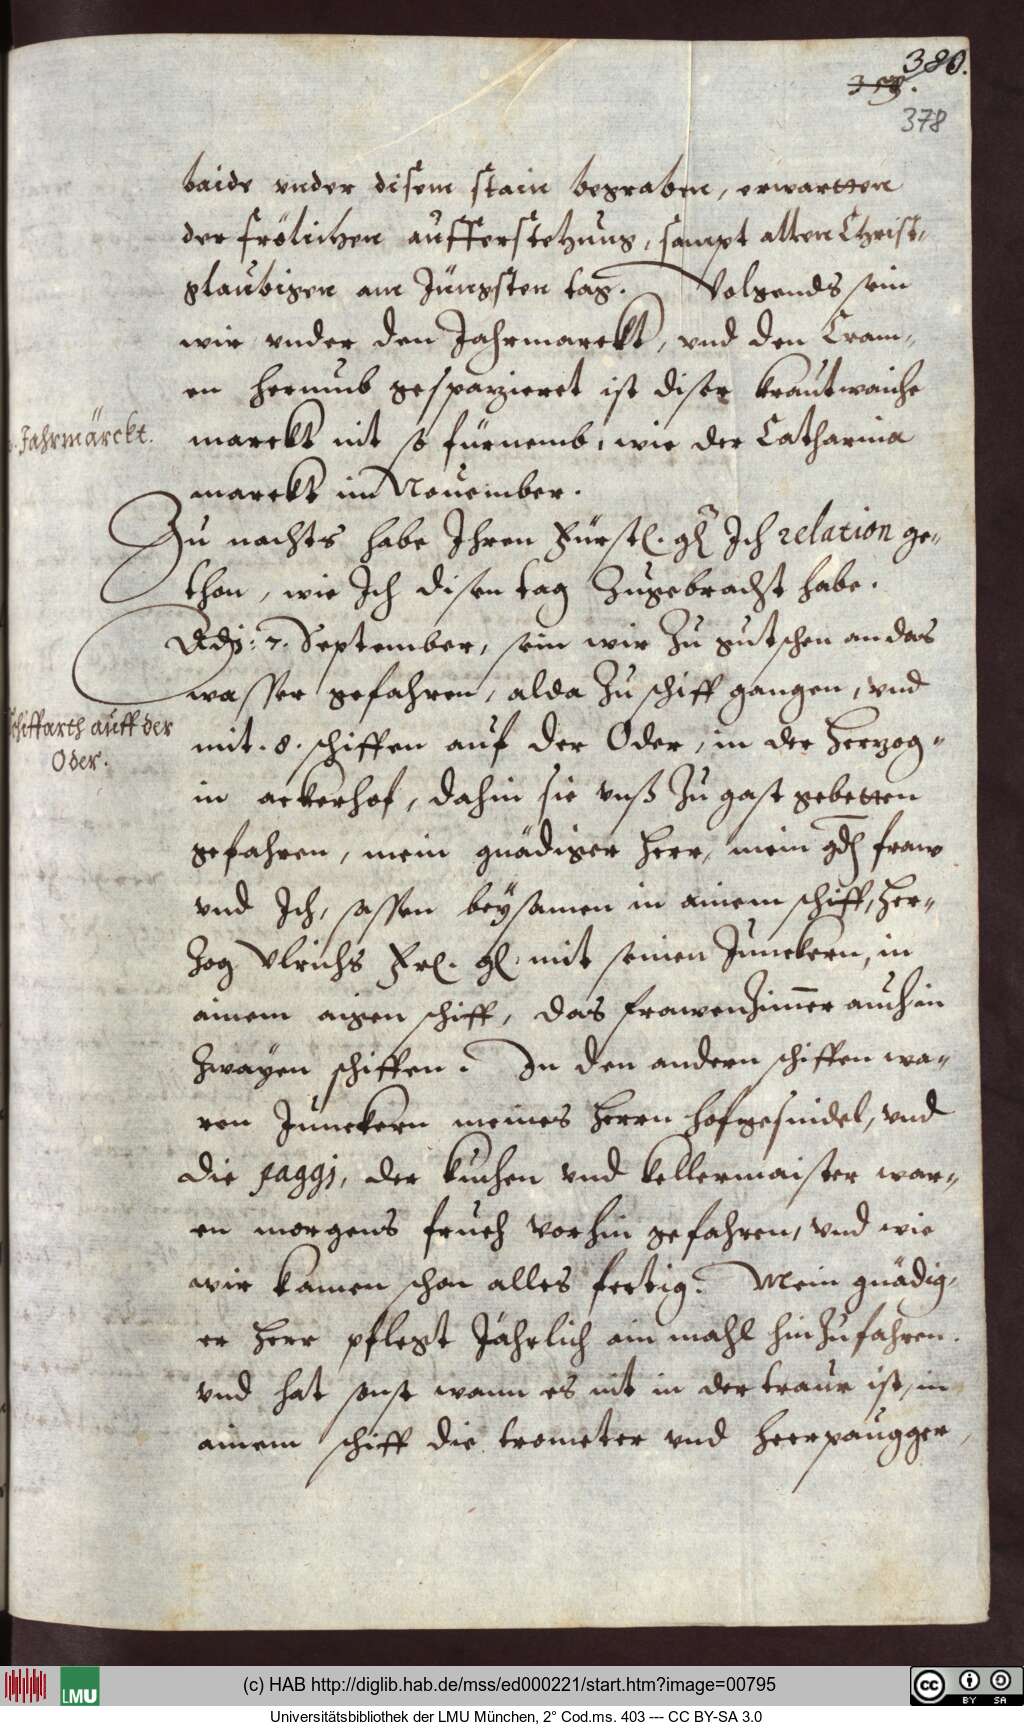 380.
378
baide vnder disem stain begraben, erwartten
der frölichen aufferstehung, sampt allen Christ-
glaubigen am Jüngsten tag. Volgends sein
wir vnder den Jahrmarckt, vnd den Cram-
en herumb gespazieret ist diser krautwaiche
Jahrmärckt.
marckt nit so fürnemb, wie der Catharina
marckt im Nouember.
Zu nachts habe Ihren Fürstl. gl Ich relation ge-
thon, wie Ich disen tag Zugebracht habe.
Adj: 7. September, sein wir Zu gutschen an das
wasser gefahren, alda Zu schiff gangen, vnd
Schiffarth auff der
Oder.
mit .8. schiffen auf der Oder, in der Herzog-
in ackerhof, dahin sie vnß Zu gast gebetten
gefahren, mein gnädiger Herr, mein gdl fraw
vnd Ich, sassen beÿsamen in ainem schiff, Her-
Zog Vlrichs Frl. gl mit seinen Junckern, in
ainem aigen schiff, das frawenZimer auch in
Zwayen schiffen. In den andern schiffen wa-
ren Junckern meines Herrn hofgesindel, vnd
die paggj, der kuchen vnd kellermaister war-
en morgens frueh vorhin gefahren, vnd wie
wir kamen schon alles fertig. Mein gnädig-
er Herr pflegt Jährlich ain mahl hinZufahren.
vnd hat sonst wann es nit in der traur ist, in
ainem schiff die trometer vnd Heerpaugger,
(c) HAB http://diglib.hab.de/mss/ed000221/start.htm?image=00795
LMU
BY SA
Universitätsbibliothek der LMU München, 2° Cod.ms. 403 --- CC BY-SA 3.0